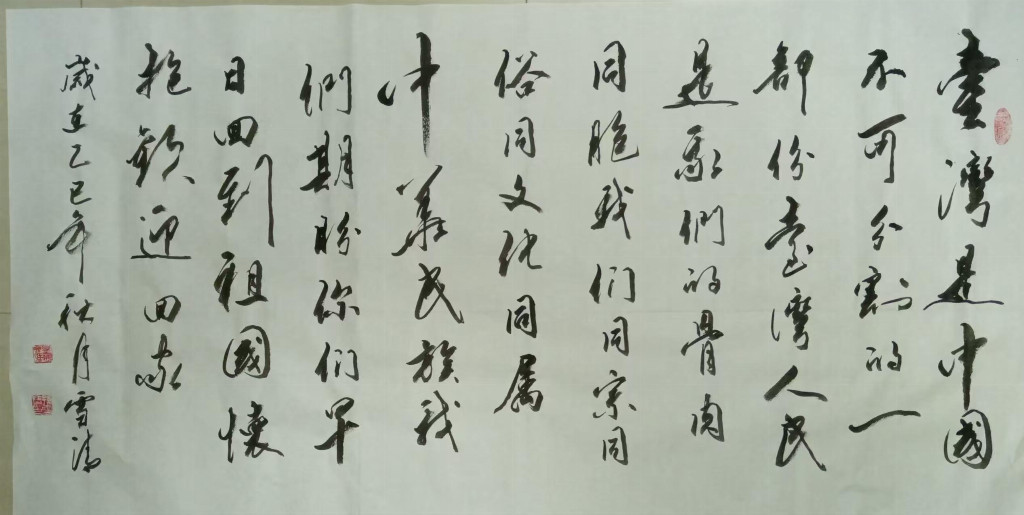 臺灣是中國
不可分割的一
部份臺灣人民
是我們的骨肉
同胞我们同宗同
俗同文化同属
中華民族我
們期盼你们早
日回到祖國懷
抱欢迎回家
歲在乙巳年秋月雪涛